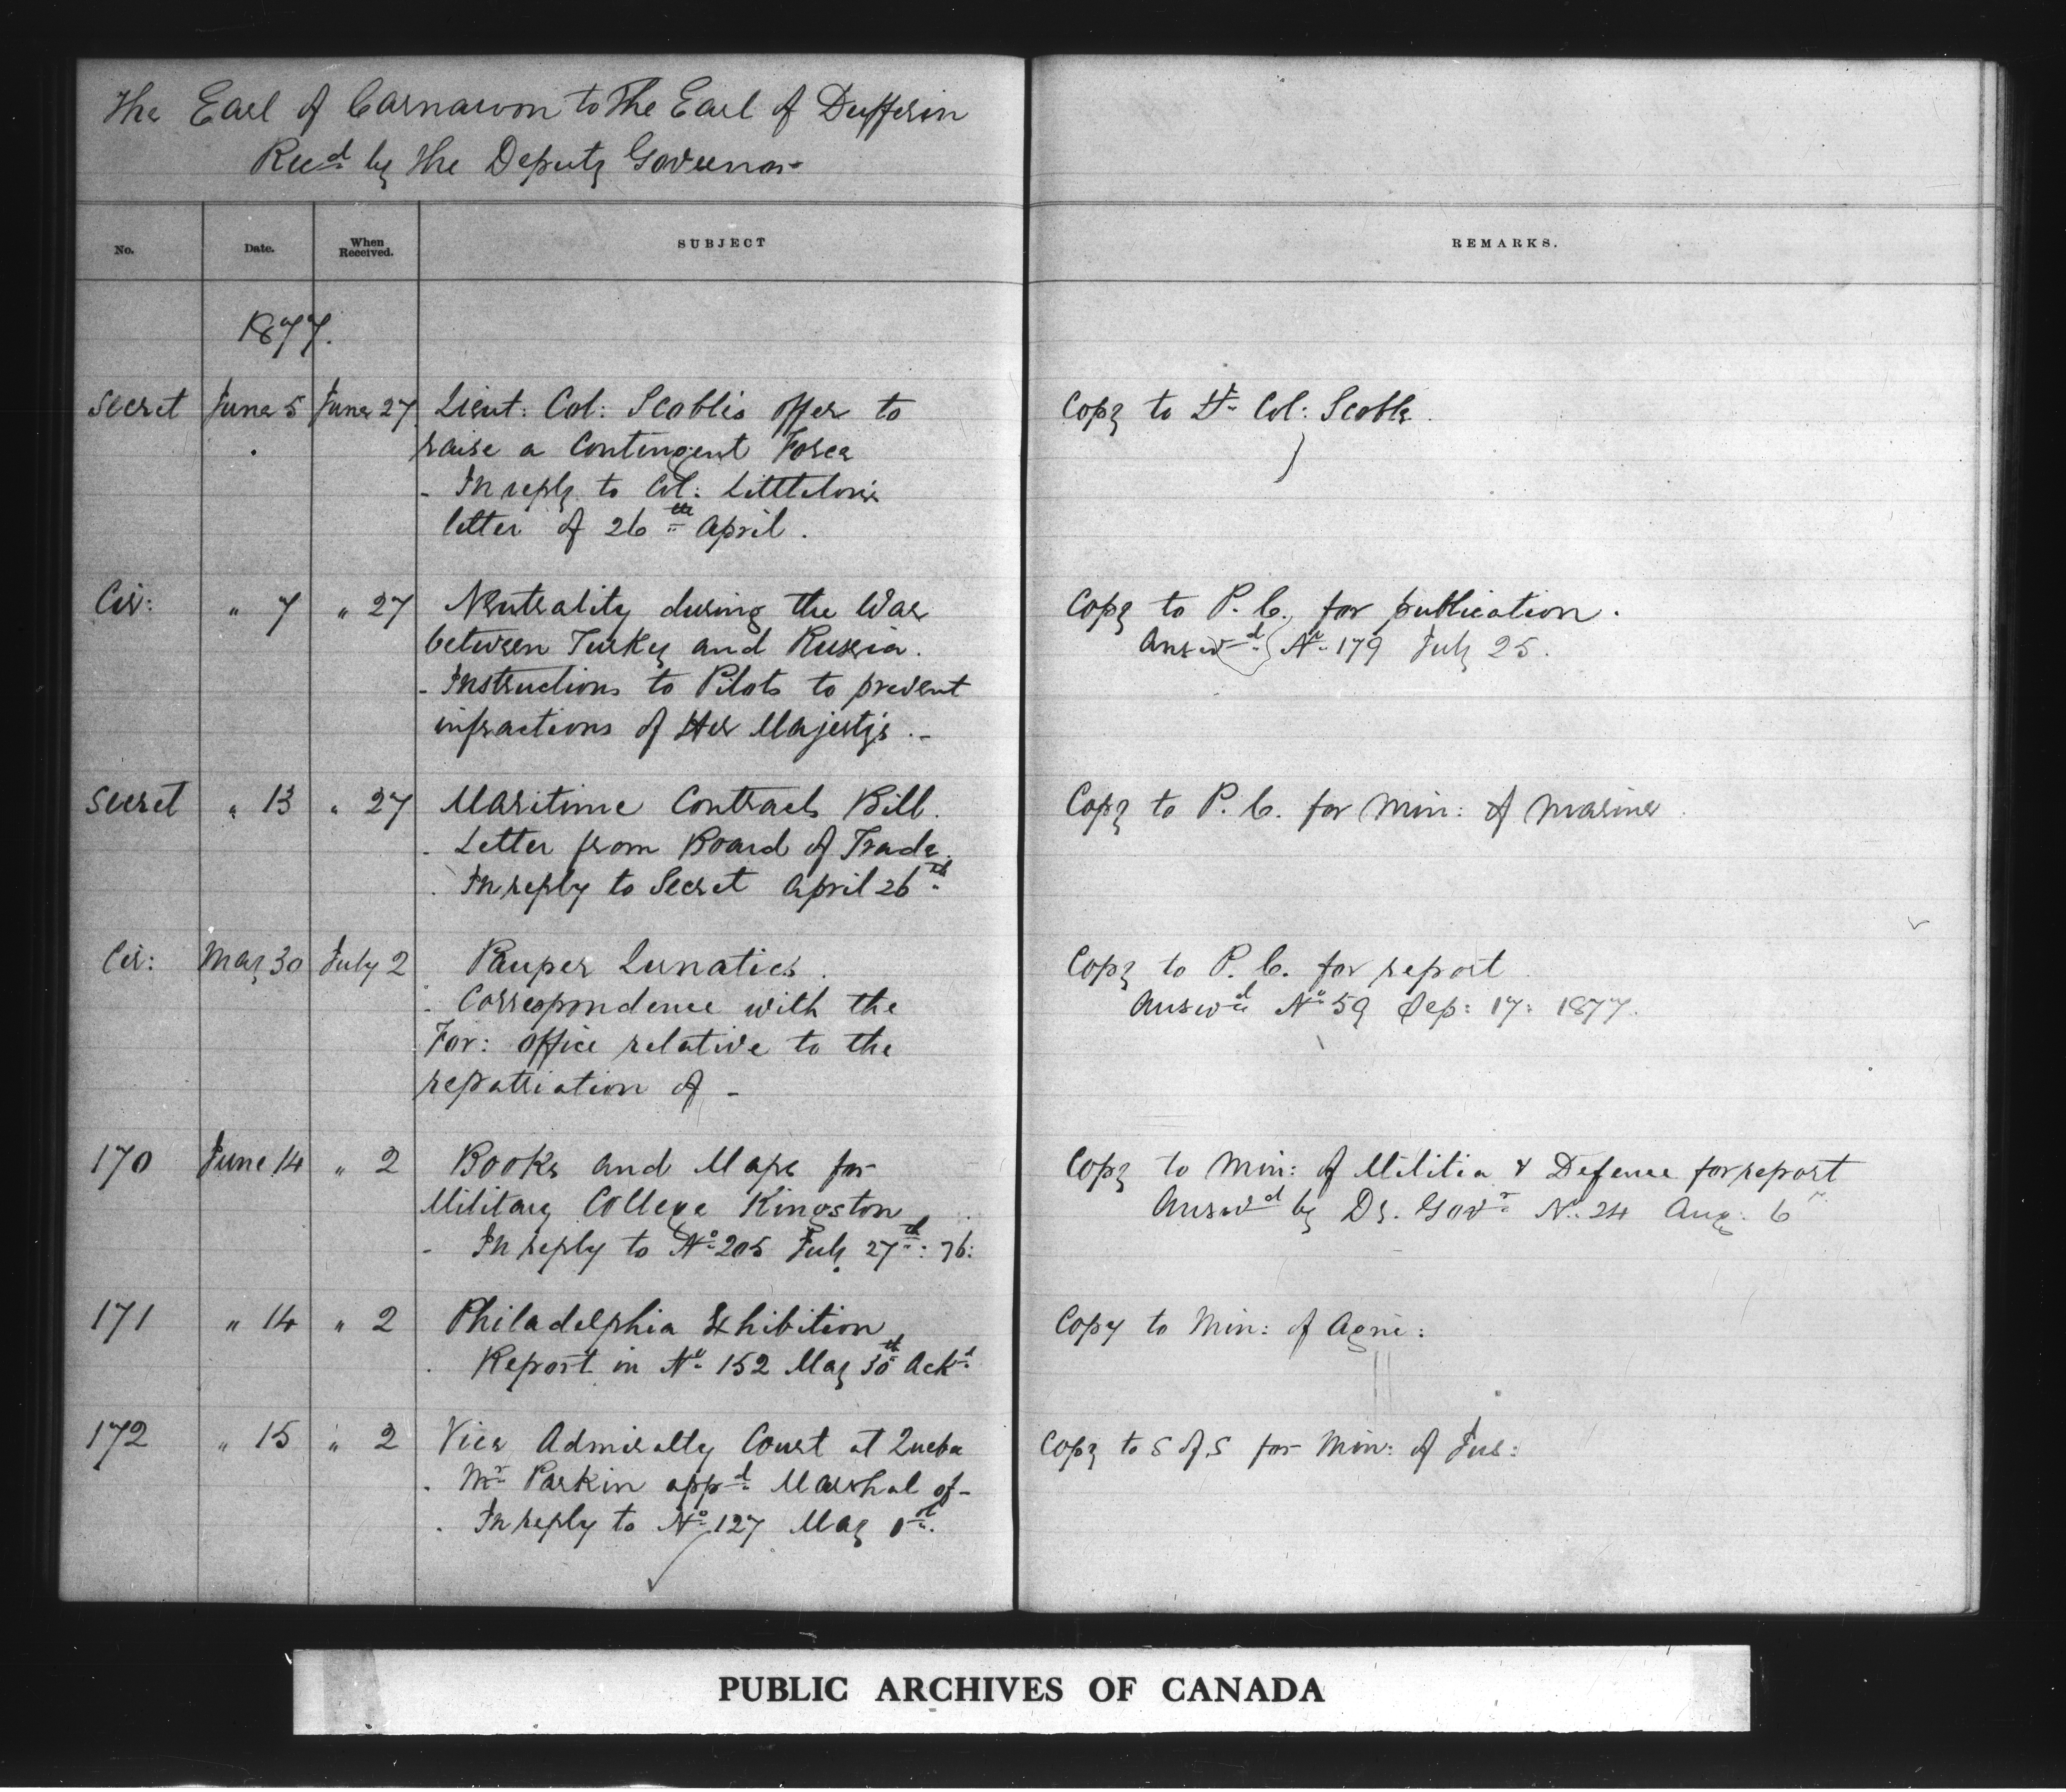 The Earl of Carnarvon to The Earl of Dufferin
Recd by the Deputy Governor
No. Date. When Received. SUBJECT REMARKS.
1877.
Secret June 5 June 27 Lieut: Col: Scoble's offer to Copy to Lt Col: Scoble.
raise a Contingent Force
- In reply to Col: Littleton's
letter of 26th April.
Cir: " 7 " 27 Neutrality during the War Copy to P.C. for publication.
between Turkey and Russia. Answd No 179 July 25.
- Instructions to Pilots to prevent
infractions of Her Majesty's -
Secret " 13 " 27 Maritime Contracts Bill. Copy to P.C. for Min: of Marine
- Letter from Board of Trade.
- In reply to Secret April 26th
Cir: May 30 July 2 Pauper Lunatics. Copy to P.C. for report
- Correspondence with the Answd No 59 Sep: 17: 1877.
For: Office relative to the
repatriation of -
170 June 14 " 2 Books and Maps for Copy to Min: of Militia & Defence for report
Military College Kingston Answd by Dy. Govr No. 24 Aug: 6
- In reply to No 205 July 27th: 76:
171 " 14 " 2 Philadelphia Exhibition Copy to Min: of Agri:
- Report in No 152 May 30th Ackd
172 " 15 " 2 Vice Admiralty Court at Quebec Copy to S of S for Min: of Jus:
- Mr Parkin appd Marshal of -
- In reply to No 127 May
PUBLIC ARCHIVES OF CANADA